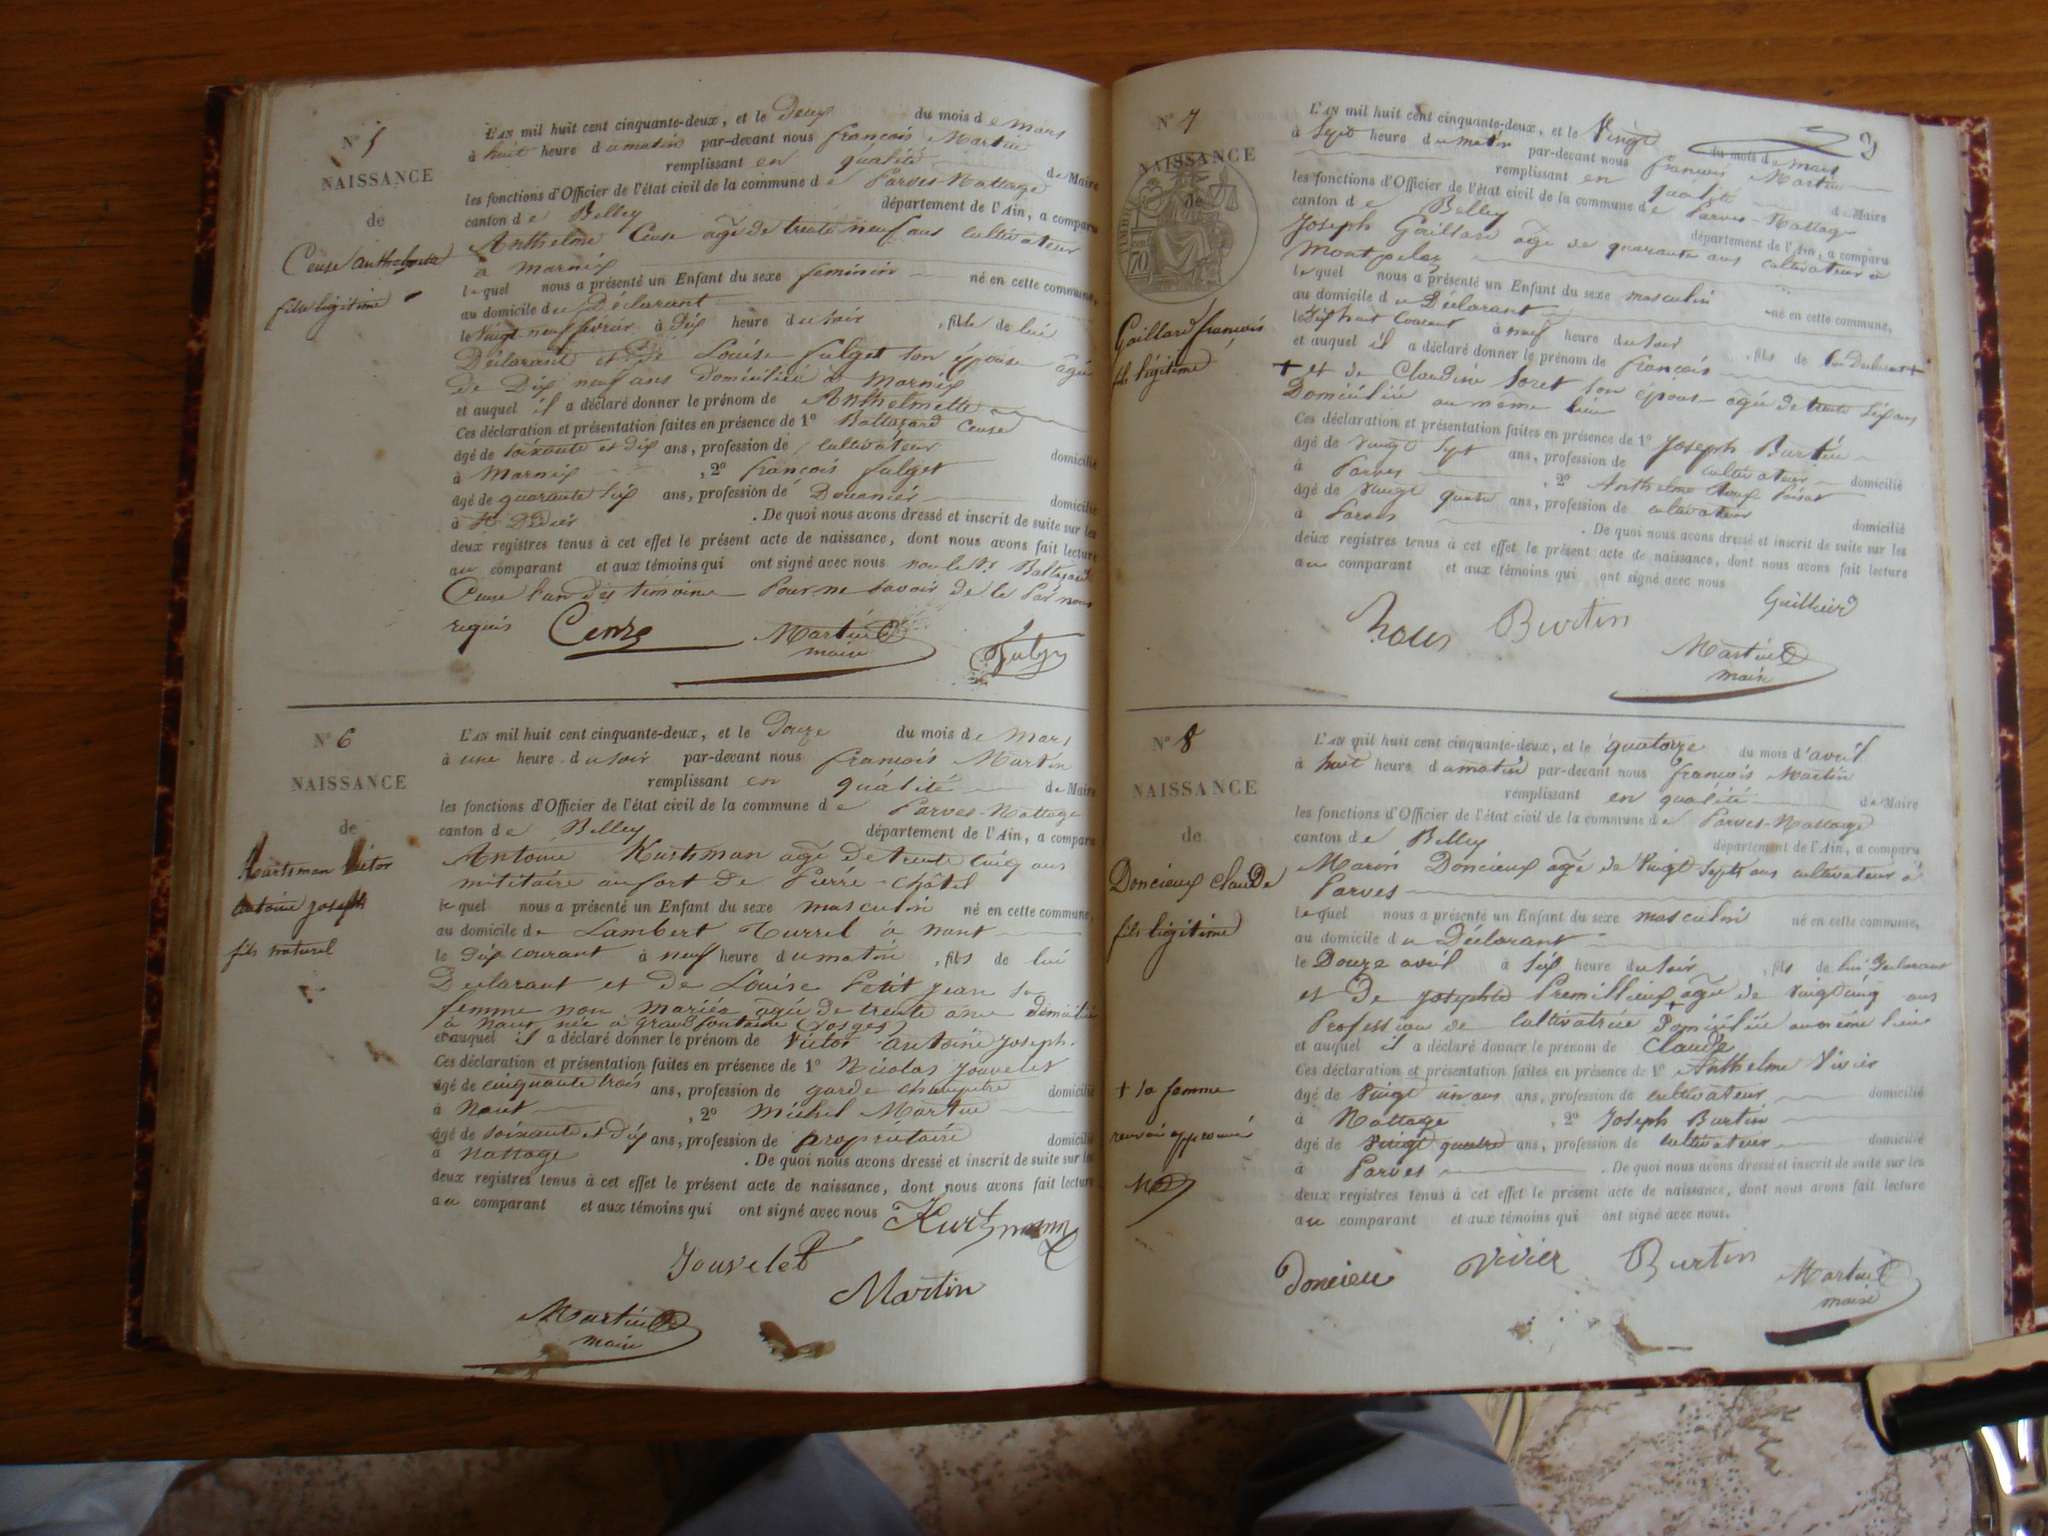 N° 5
NAISSANCE
de
Ceuse Anthelmette
fille légitime
L'AN mil huit cent cinquante-deux, et le Deux du mois de mars
à huit heure du matin par-devant nous françois Martin
remplissant en qualité de Maire
les fonctions d'Officier de l'état civil de la commune de Parves-Nattage
canton de Belley département de l'Ain, a comparu
Anthelme Ceuse agé de trente neuf ans cultivateur
à Marnix
lequel nous a présenté un Enfant du sexe feminin né en cette commune,
au domicile du Déclarant
le Vingt neuf février à Dix heure du soir , fille de lui
Déclarant et de Louise fulget son épouse agée
de Dix neuf ans domiciliée à Marnix
et auquel il a déclaré donner le prénom de Anthelmette
Ces déclaration et présentation faites en présence de 1° Baltazard Ceuse
âgé de soixante et dix ans, profession de cultivateur domicilié
à Marnix , 2° françois fulget
âgé de quarante six ans, profession de Douanier domicilié
à St Didier . De quoi nous avons dressé et inscrit de suite sur les
deux registres tenus à cet effet le présent acte de naissance, dont nous avons fait lecture
au comparant et aux témoins qui ont signé avec nous non le Baltazard
Ceuse l'un des témoins Pour ne savoir de le Par nous
requis Martin
maire
N° 6
NAISSANCE
de
Kurtsman Victor
antoine joseph
fils naturel
L'AN mil huit cent cinquante-deux, et le Douze du mois de Mars
à une heure du soir par-devant nous françois Martin
remplissant en qualité de Maire
les fonctions d'Officier de l'état civil de la commune de Parves-Nattage
canton de Belley département de l'Ain, a comparu
Antoine Kurtsman agé de trente cinq ans
militaire au fort de Pierre-Châtel
lequel nous a présenté un Enfant du sexe masculin né en cette commune,
au domicile de Lambert Turrel à nant
le Dix courant à neuf heure du matin , fils de lui
Declarant et de Louise Petit jean sa
femme non mariée agée de trente ans domiciliée
à Nant née à grand fontaine (Vosges)
et auquel il a déclaré donner le prénom de Victor antoine joseph.
Ces déclaration et présentation faites en présence de 1° Nicolas Jouvelet
âgé de cinquante trois ans, profession de garde champetre domicilié
à Nant , 2° michel Martin
âgé de soixante et dix ans, profession de propriétaire domicilié
à Nattage . De quoi nous avons dressé et inscrit de suite sur les
deux registres tenus à cet effet le présent acte de naissance, dont nous avons fait lecture
au comparant et aux témoins qui ont signé avec nous Kurtsmann
Jouvelet
Martin
Martin
maire
N° 7
NAISSANCE
de
TIMBRE
70
Gaillard françois
fils légitime
3
L'AN mil huit cent cinquante-deux, et le Vingt du mois de mars
à Sept heure du matin par-devant nous françois Martin
remplissant en qualité de Maire
les fonctions d'Officier de l'état civil de la commune de Parves-Nattage
canton de Belley département de l'Ain, a comparu
Joseph Gaillard agé de quarante ans cultivateur à
Montpelaz
lequel nous a présenté un Enfant du sexe masculin né en cette commune,
au domicile du Déclarant
le Dix huit Courant à neuf heure du soir , fils de lui Declarant +
et auquel il a déclaré donner le prénom de françois
+ et de Claudine Soret son épouse agée de trente six ans
Domiciliée au même lieu
Ces déclaration et présentation faites en présence de 1° Joseph Burtin
âgé de vingt sept ans, profession de cultivateur domicilié
à Parves , 2° Anthelme
âgé de vingt quatre ans, profession de cultivateur domicilié
à Parves . De quoi nous avons dressé et inscrit de suite sur les
deux registres tenus à cet effet le présent acte de naissance, dont nous avons fait lecture
au comparant et aux témoins qui ont signé avec nous
Burtin
Martin
maire
N° 8
NAISSANCE
de
Doncieux Claude
fils légitime
+ sa femme
renvoi approuvé
L'AN mil huit cent cinquante-deux, et le quatorze du mois d'avril
à huit heure du matin par-devant nous françois Martin
remplissant en qualité de Maire
les fonctions d'Officier de l'état civil de la commune de Parves-Nattage
canton de Belley département de l'Ain, a comparu
Marin Doncieux âgé de Vingt sept ans cultivateur à
Parves
lequel nous a présenté un Enfant du sexe masculin né en cette commune,
au domicile du Déclarant
le Douze avril à six heure du soir , fils de lui Declarant
et de josephte Premillieux + agée de Vingt cinq ans
Profession de cultivatrice Domiciliée au même lieu
et auquel il a déclaré donner le prénom de Claude
Ces déclaration et présentation faites en présence de 1° Anthelme Vivier
âgé de Vingt un ans ans, profession de cultivateur domicilié
à Nattage , 2° Joseph Burtin
âgé de Vingt quatre ans, profession de cultivateur domicilié
à Parves . De quoi nous avons dressé et inscrit de suite sur les
deux registres tenus à cet effet le présent acte de naissance, dont nous avons fait lecture
au comparant et aux témoins qui ont signé avec nous.
Doncieu Vivier Burtin Martin
maire